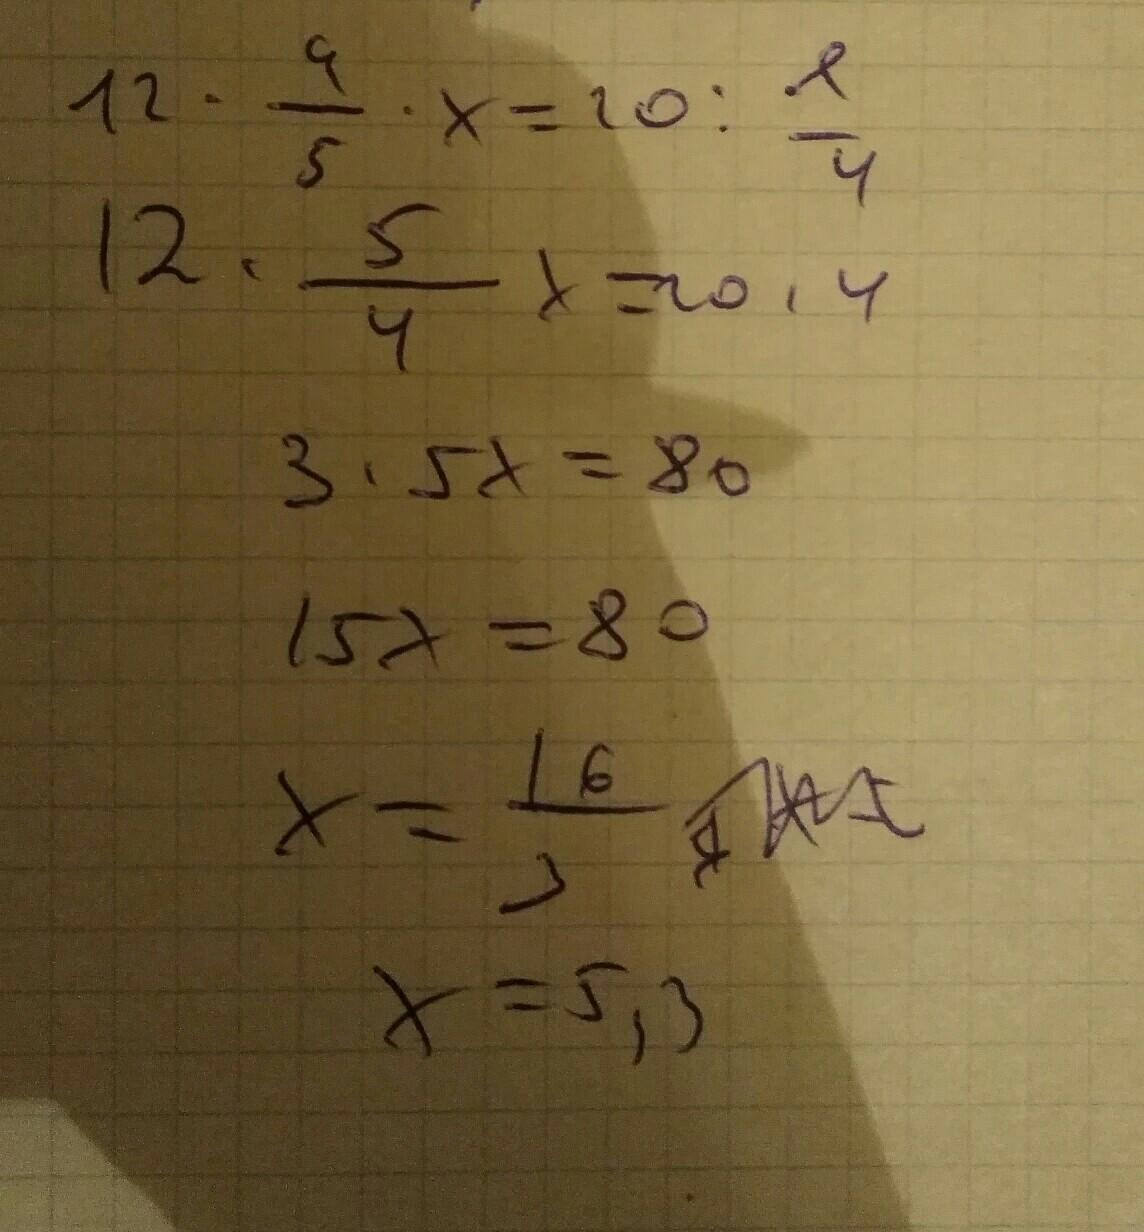 12 · 4/5 · x = 20 : 1/4
12 · 5/4 x = 20 · 4
3 · 5x = 80
15x = 80
x = 16/3
x = 5,3